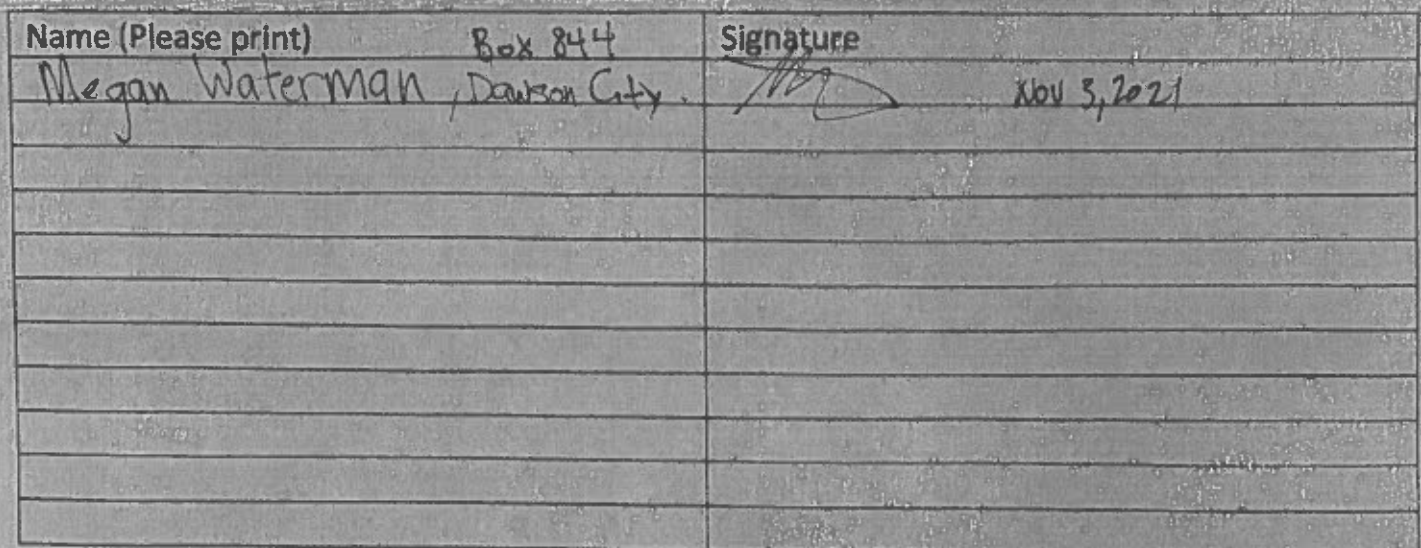 Name (Please print) Box 844 Signature
Megan Waterman, Dawson City. Nov 3, 2021